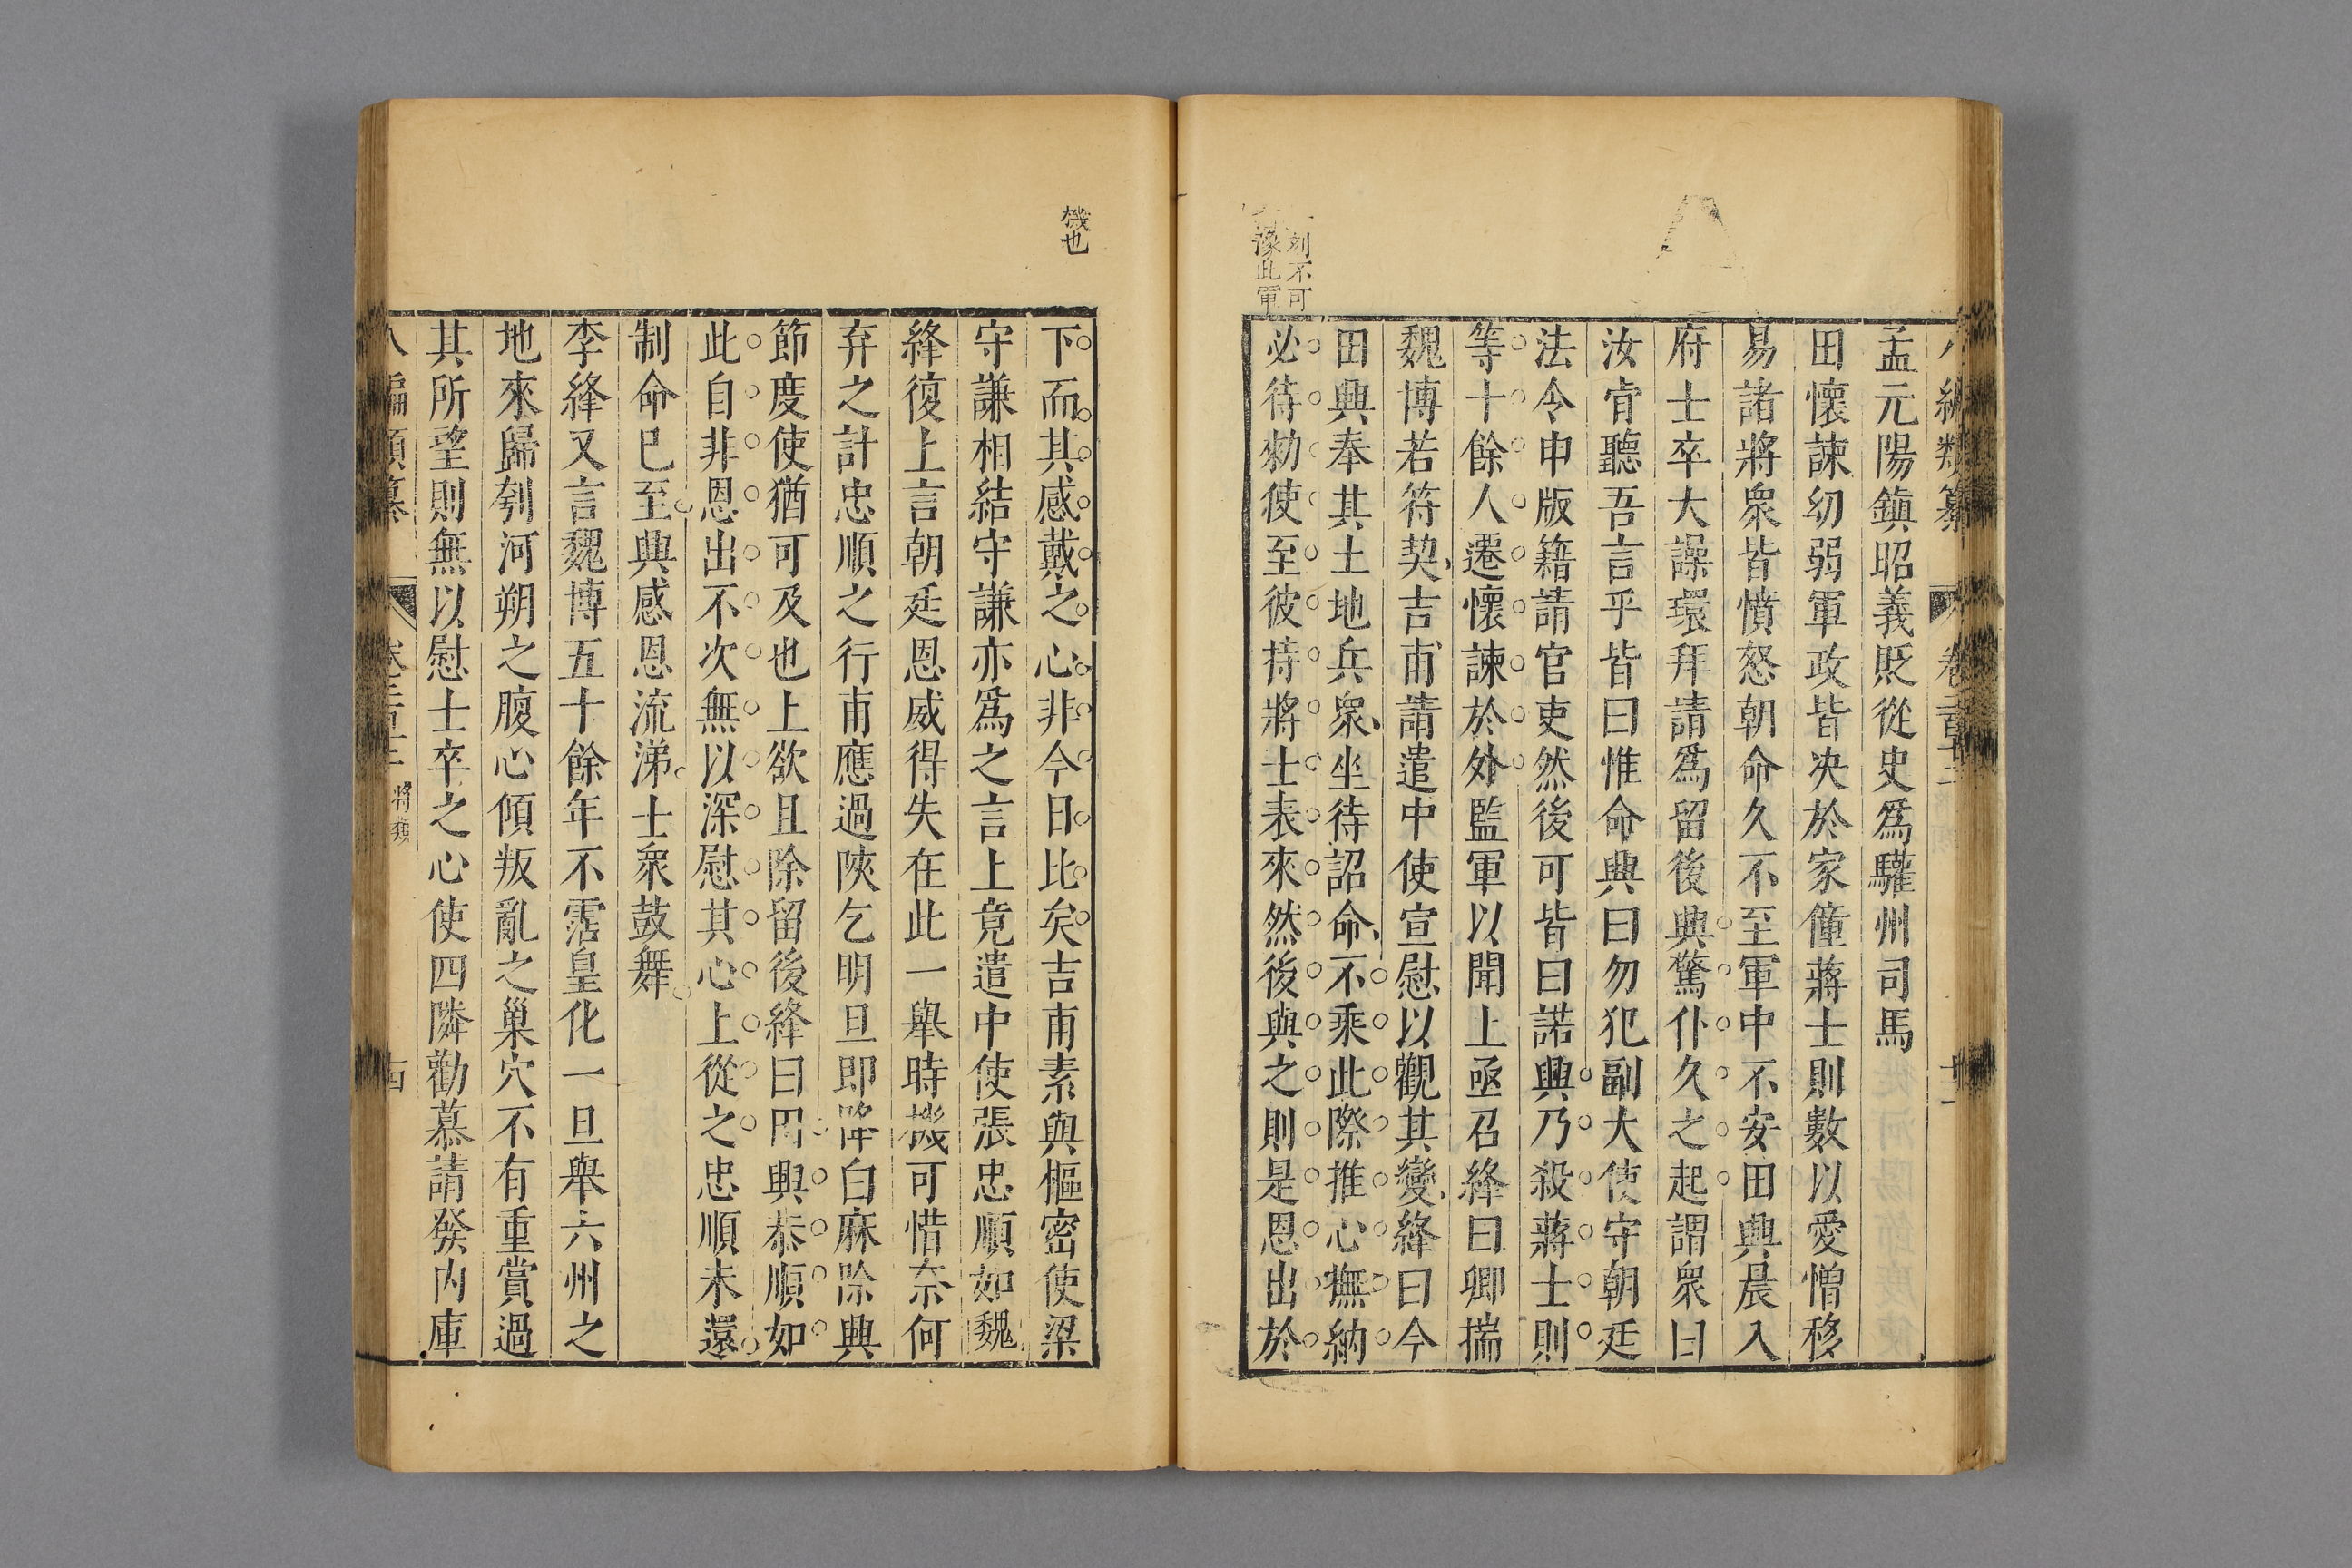 孟元陽鎮昭義貶從史爲驩州司馬
田懷諫幼弱軍政皆决於家僮蔣士則數以愛憎移
易諸將衆皆憤怒朝命久不至軍中不安田興晨入
府士卒大譟環拜請爲留後興驚仆久之起謂衆曰
汝肯聽吾言乎皆曰惟命興曰勿犯副大使守朝廷
法令申版籍請官吏然後可皆曰諾興乃殺蔣士則
等十餘人遷懷諫於外監軍以聞上亟召絳曰卿揣
魏博若符契吉甫請遣中使宣慰以觀其變絳曰今
田興奉其土地兵衆坐待詔命不乘此際推心撫納
必待勑使至彼持將士表來然後與之則是恩出於
刻不可
此軍
機也
下而其感戴之心非今日比矣吉甫素與樞密使梁
守謙相結守謙亦爲之言上竟遣中使張忠順如魏
絳復上言朝廷恩威得失在此一舉時機可惜奈何
弃之計忠順之行甫應過陝乞明旦即降白麻除興
節度使猶可及也上欲且除留後絳曰田興恭順如
此自非恩出不次無以深慰其心上從之忠順未還
制命已至興感恩流涕士衆鼓舞
李絳又言魏博五十餘年不霑皇化一旦舉六州之
地來歸刳河朔之腹心傾叛亂之巢穴不有重賞過
其所望則無以慰士卒之心使四隣勸慕請發内庫
將類